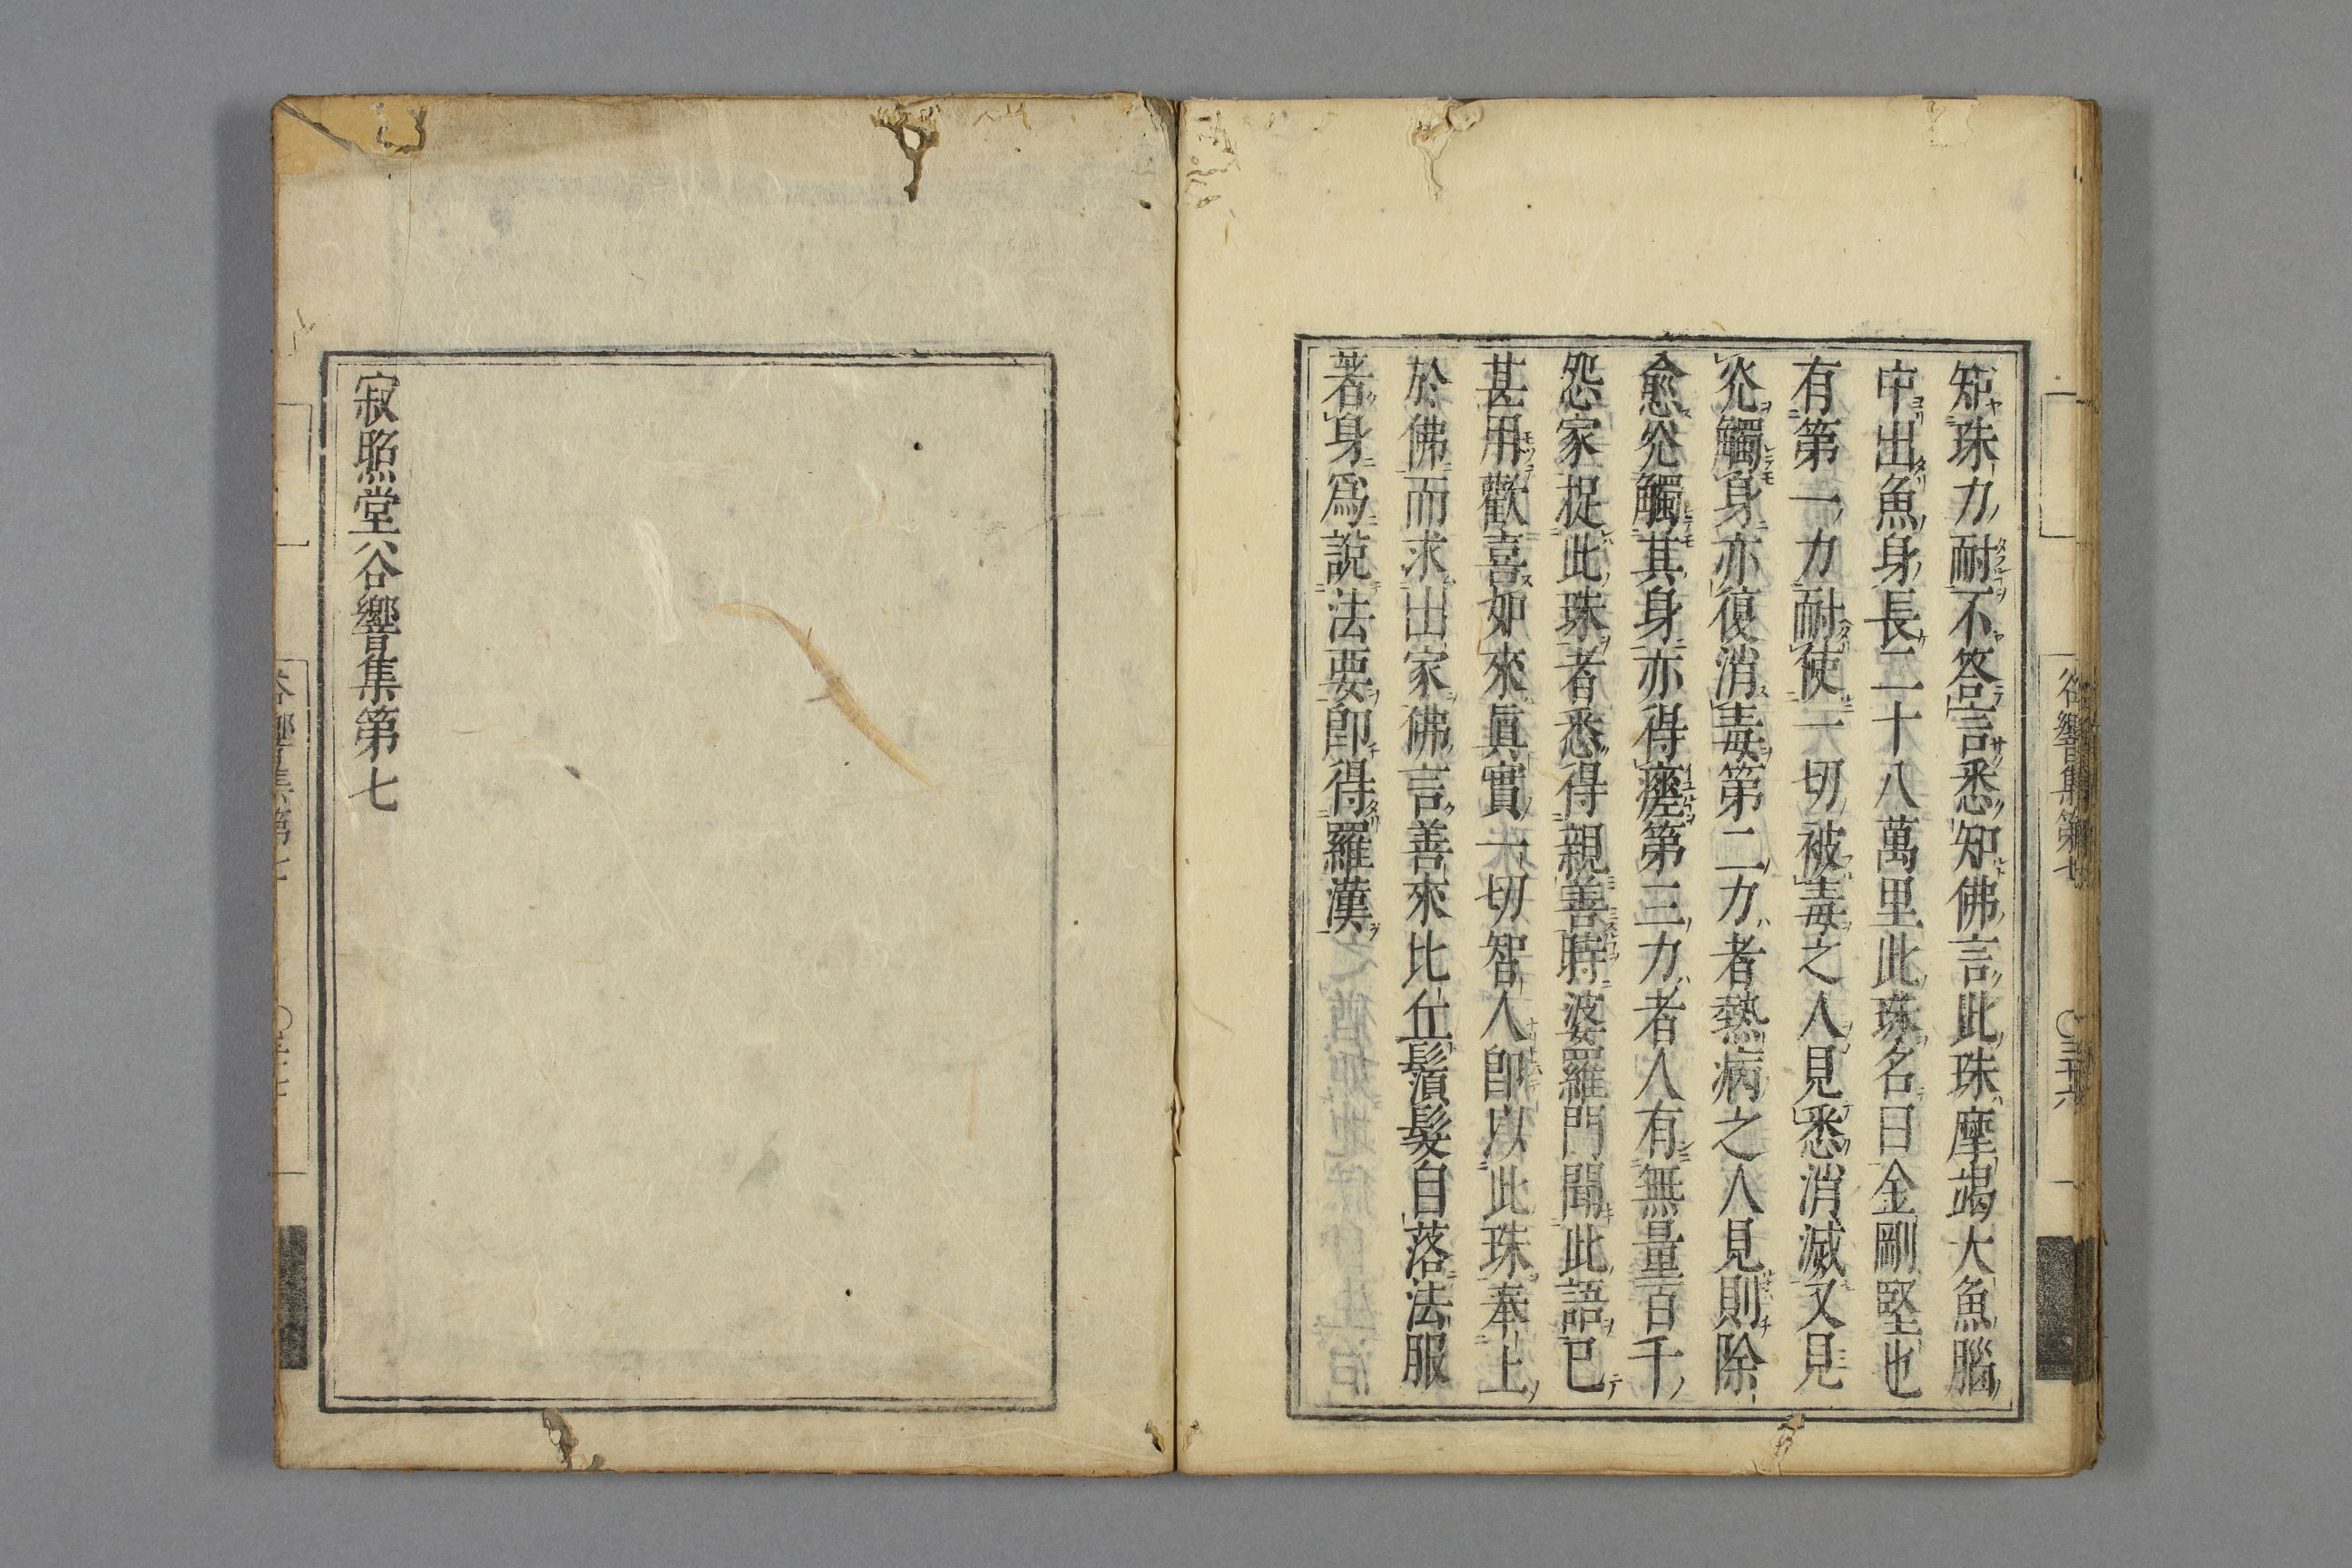 知珠力耐不答言悉知佛言此珠摩竭大魚腦
中出魚身長二十八萬里此珠名曰金剛堅也
有第一力耐使一切被毒之人見悉消滅又見
光觸身亦復消毒第二力者熱病之人見則除
愈光觸其身亦得瘥第三力者人有無量百千
怨家捉此珠者悉得親善時婆羅門聞此語已
甚用歡喜如來眞實一切智人卽以此珠奉上
於佛而求出家佛言善來比丘鬚髮自落法服
著身爲說法要卽得羅漢
谷響集第七
〇三十六
寂照堂谷響集第七